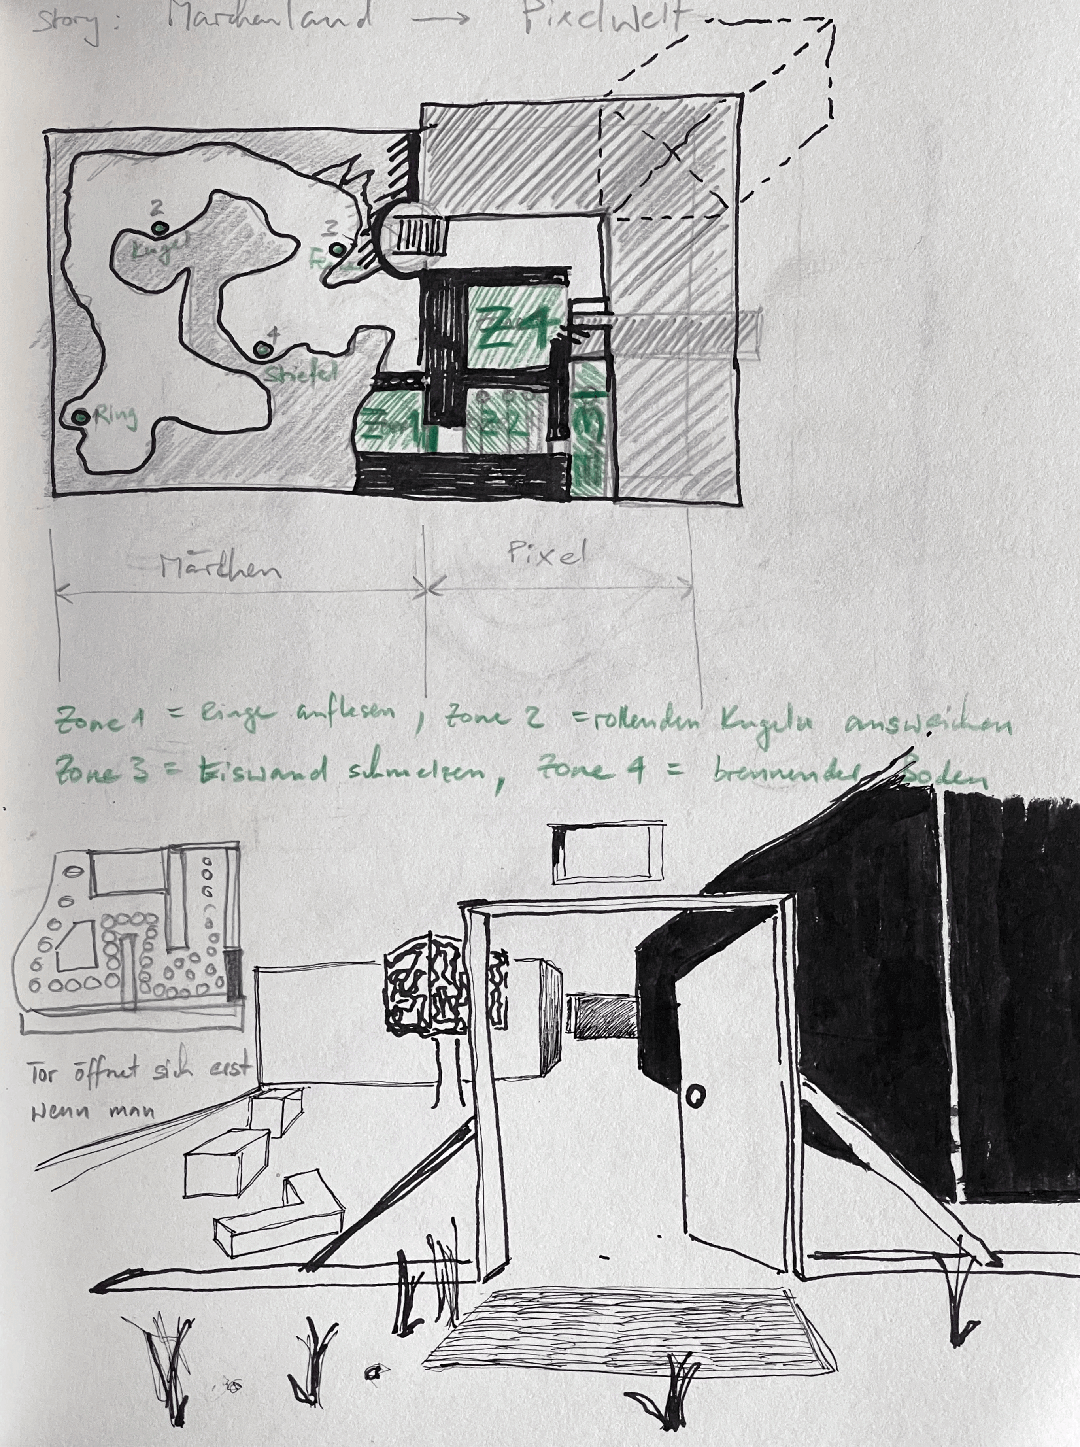 Story: Märchenland → Pixelwelt
2
Kugel
3
4
Stiefel
Ring
Z4
Z2
Z3
Märchen
Pixel
Zone 1 = Ringe auflesen, Zone 2 = rollenden Kugeln ausweichen
Zone 3 = Eiswand schmelzen, Zone 4 = brennender Boden
Tor öffnet sich erst
wenn man